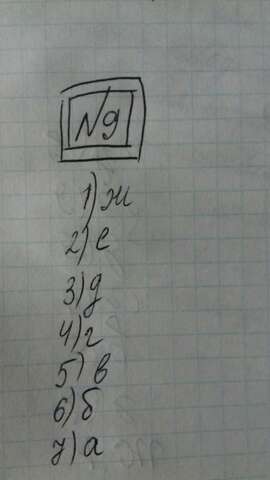 №9
1) ж
2) е
3) д
4) г
5) в
6) б
7) а